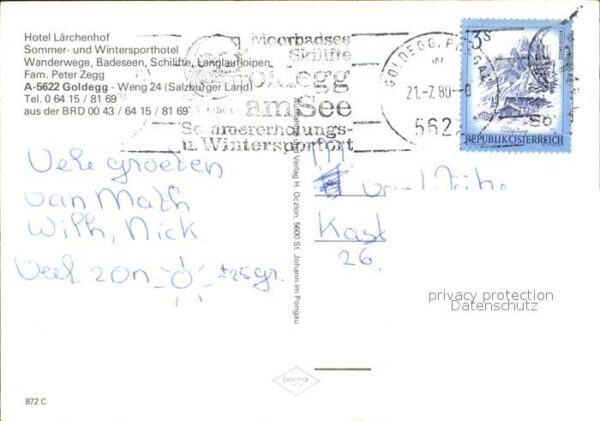 Hotel Lärchenhof
Sommer- und Wintersporthotel
Wanderwege, Badeseen, Schilifte, Langlaufloipen
Fam. Peter Zegg
A-5622 Goldegg - Weng 24 (Salzburger Land)
Tel. 0 64 15 / 81 69
aus der BRD 00 43 / 64 15 / 81 69
Moorbadsee
Skilifte
Goldegg
am See
Sommererholungs-
u. Wintersportort
GOLDEGG, PONGAU
21.-7.80.-0
5622
3S
REPUBLIK ÖSTERREICH
Vele groeten
van Math
Wilh, Nick.
Veel zon ± 25 gr.
Verlag H. Oczlon, 5600 St. Johann im Pongau
Kast
26.
privacy protection
Datenschutz
872 C